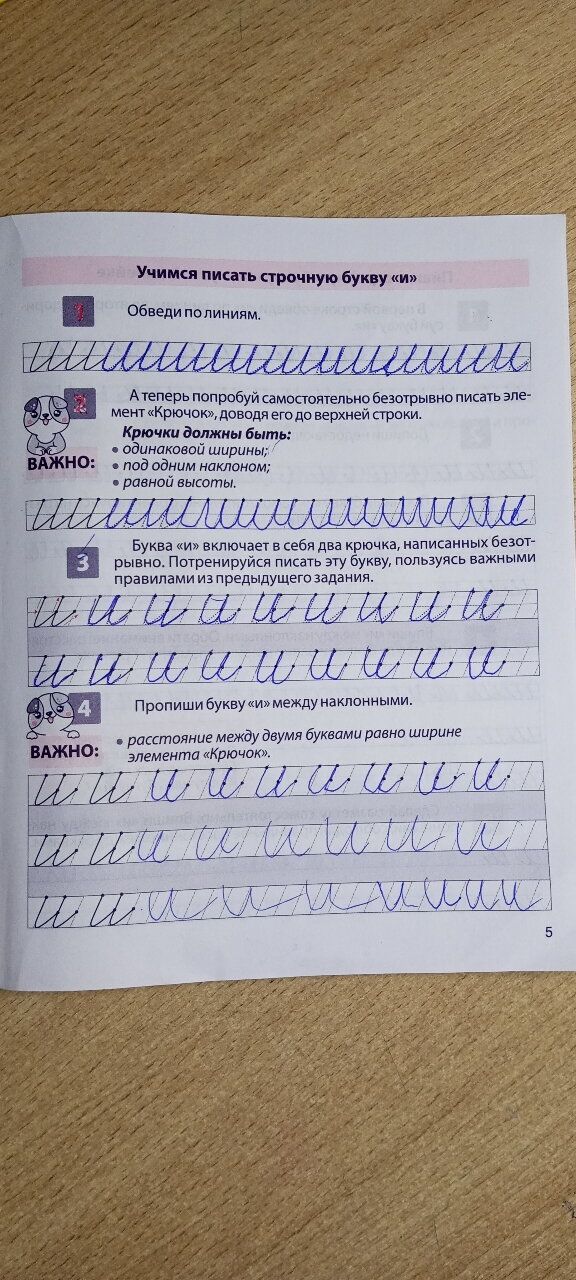 Учимся писать строчную букву «и»
1
Обведи по линиям.
2
А теперь попробуй самостоятельно безотрывно писать эле-
мент «Крючок», доводя его до верхней строки.
Крючки должны быть:
ВАЖНО:
• одинаковой ширины;
• под одним наклоном;
• равной высоты.
3
Буква «и» включает в себя два крючка, написанных безот-
рывно. Потренируйся писать эту букву, пользуясь важными
правилами из предыдущего задания.
и и и и и и и и
и и и и и и и и
4
Пропиши букву «и» между наклонными.
ВАЖНО:
• расстояние между двумя буквами равно ширине
элемента «Крючок».
и и и и и и и и и
и и и и и и и и
и и и и и и и и и
5